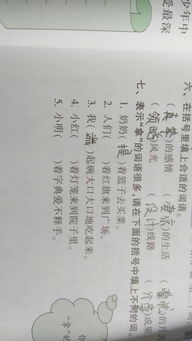 少年中
受最深
六、在括号里填上合适的词语。
(真挚)的感情 (　)的生活 (　)的
(领略)风光 (设计)线路 (　)成
七、表示“拿”的词语很多,请在下面的括号中填上不同的词。
1. 奶奶(提)着篮子去买菜。
2. 人们(　)着红旗来到广场。
3. 我(端)起碗大口大口地吃起来。
4. 小红(　)着灯笼来到院子里。
5. 小明(　)着字典爱不释手。
“拿”的